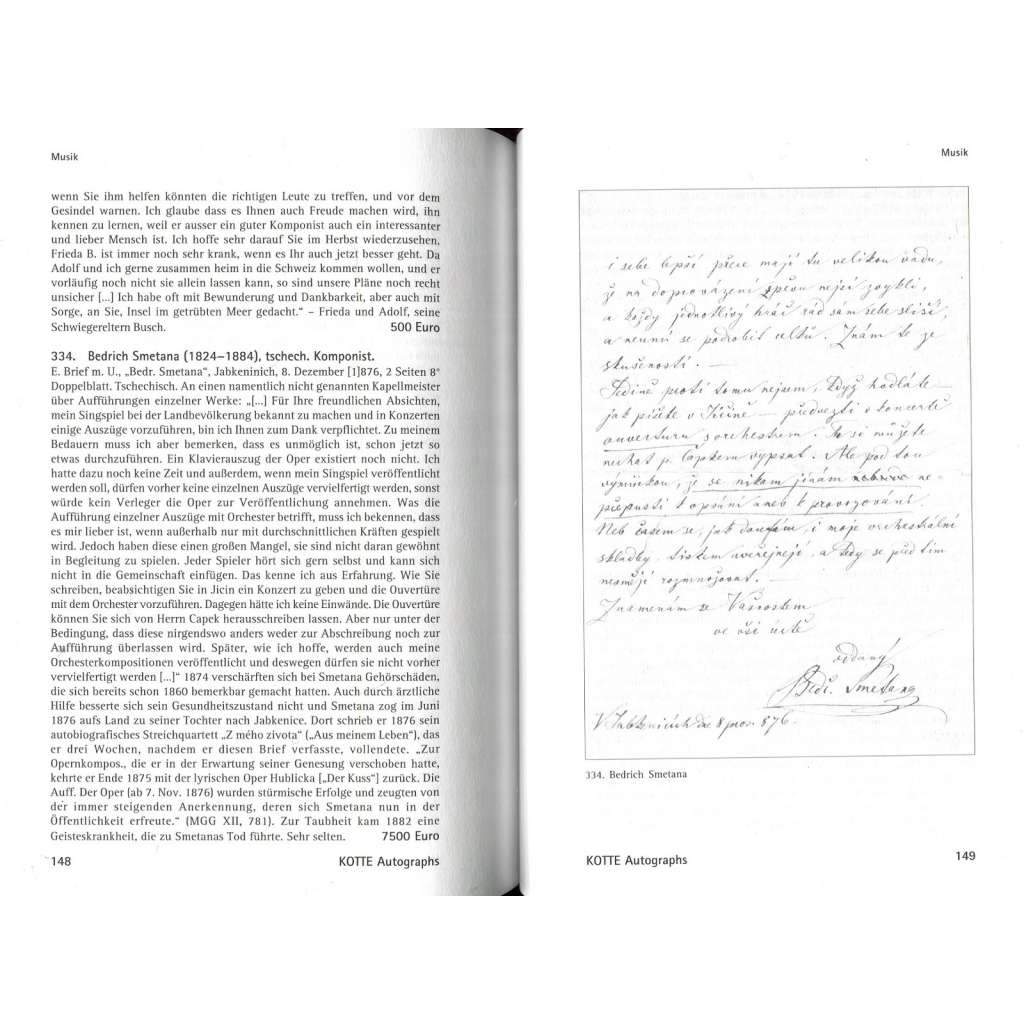 Musik
wenn Sie ihm helfen könnten die richtigen Leute zu treffen, und vor dem
Gesindel warnen. Ich glaube dass es Ihnen auch Freude machen wird, ihn
kennen zu lernen, weil er ausser ein guter Komponist auch ein interessanter
und lieber Mensch ist. Ich hoffe sehr darauf Sie im Herbst wiederzusehen,
Frieda B. ist immer noch sehr krank, wenn es Ihr auch jetzt besser geht. Da
Adolf und ich gerne zusammen heim in die Schweiz kommen wollen, und er
vorläufig noch nicht sie allein lassen kann, so sind unsere Pläne noch recht
unsicher [...] Ich habe oft mit Bewunderung und Dankbarkeit, aber auch mit
Sorge, an Sie, Insel im getrübten Meer gedacht.“ – Frieda und Adolf, seine
Schwiegereltern Busch. 500 Euro
334. Bedrich Smetana (1824–1884), tschech. Komponist.
E. Brief m. U., „Bedr. Smetana“, Jabkeninich, 8. Dezember [1]876, 2 Seiten 8°
Doppelblatt. Tschechisch. An einen namentlich nicht genannten Kapellmeister
über Aufführungen einzelner Werke: „[...] Für Ihre freundlichen Absichten,
mein Singspiel bei der Landbevölkerung bekannt zu machen und in Konzerten
einige Auszüge vorzuführen, bin ich Ihnen zum Dank verpflichtet. Zu meinem
Bedauern muss ich aber bemerken, dass es unmöglich ist, schon jetzt so
etwas durchzuführen. Ein Klavierauszug der Oper existiert noch nicht. Ich
hatte dazu noch keine Zeit und außerdem, wenn mein Singspiel veröffentlicht
werden soll, dürfen vorher keine einzelnen Auszüge vervielfertigt werden, sonst
würde kein Verleger die Oper zur Veröffentlichung annehmen. Was die
Aufführung einzelner Auszüge mit Orchester betrifft, muss ich bekennen, dass
es mir lieber ist, wenn außerhalb nur mit durchschnittlichen Kräften gespielt
wird. Jedoch haben diese einen großen Mangel, sie sind nicht daran gewöhnt
in Begleitung zu spielen. Jeder Spieler hört sich gern selbst und kann sich
nicht in die Gemeinschaft einfügen. Das kenne ich aus Erfahrung. Wie Sie
schreiben, beabsichtigen Sie in Jicin ein Konzert zu geben und die Ouvertüre
mit dem Orchester vorzuführen. Dagegen hätte ich keine Einwände. Die Ouvertüre
können Sie sich von Herrn Capek herausschreiben lassen. Aber nur unter der
Bedingung, dass diese nirgendswo anders weder zur Abschreibung noch zur
Aufführung überlassen wird. Später, wie ich hoffe, werden auch meine
Orchesterkompositionen veröffentlicht und deswegen dürfen sie nicht vorher
vervielfertigt werden [...]“ 1874 verschärften sich bei Smetana Gehörschäden,
die sich bereits schon 1860 bemerkbar gemacht hatten. Auch durch ärztliche
Hilfe besserte sich sein Gesundheitszustand nicht und Smetana zog im Juni
1876 aufs Land zu seiner Tochter nach Jabkenice. Dort schrieb er 1876 sein
autobiografisches Streichquartett „Z mého zivota“ („Aus meinem Leben“), das
er drei Wochen, nachdem er diesen Brief verfasste, vollendete. „Zur
Opernkompos., die er in der Erwartung seiner Genesung verschoben hatte,
kehrte er Ende 1875 mit der lyrischen Oper Hublicka [„Der Kuss“] zurück. Die
Auff. Der Oper (ab 7. Nov. 1876) wurden stürmische Erfolge und zeugten von
der immer steigenden Anerkennung, deren sich Smetana nun in der
Öffentlichkeit erfreute.“ (MGG XII, 781). Zur Taubheit kam 1882 eine
Geisteskrankheit, die zu Smetanas Tod führte. Sehr selten. 7500 Euro
148 KOTTE Autographs
Musik
i sebe lepší přece mají tu velikou vadu,
že na doprovázení zpěvu nejsí zvyklí,
a každý jednotlivý hráč rád sám sebe slyší,
a neumí se podrobit celku. Znám to ze
skušenosti. —
Jedině proti tomu nejsem, když hodláte —
jak píšete v Jičíně — přednésti v koncertě
ouverturu s orchestrem. To si můžete
nechat p. Čapkem vypsat. Ale pod tou
výmínkou, že se nikam jinám ne-
přepustí k opsání aneb k provozování.
Neb časem se, jak doufám, i moje orchestrální
skladby tiskem uveřejnějí, a tedy se před tím
nesmějí rozmnožovat. —
Znamenám se Vašnostem
ve vší úctě
oddaný
Bedř. Smetana
V Jabkenicích dne 8 pros. 876.
334. Bedrich Smetana
KOTTE Autographs 149